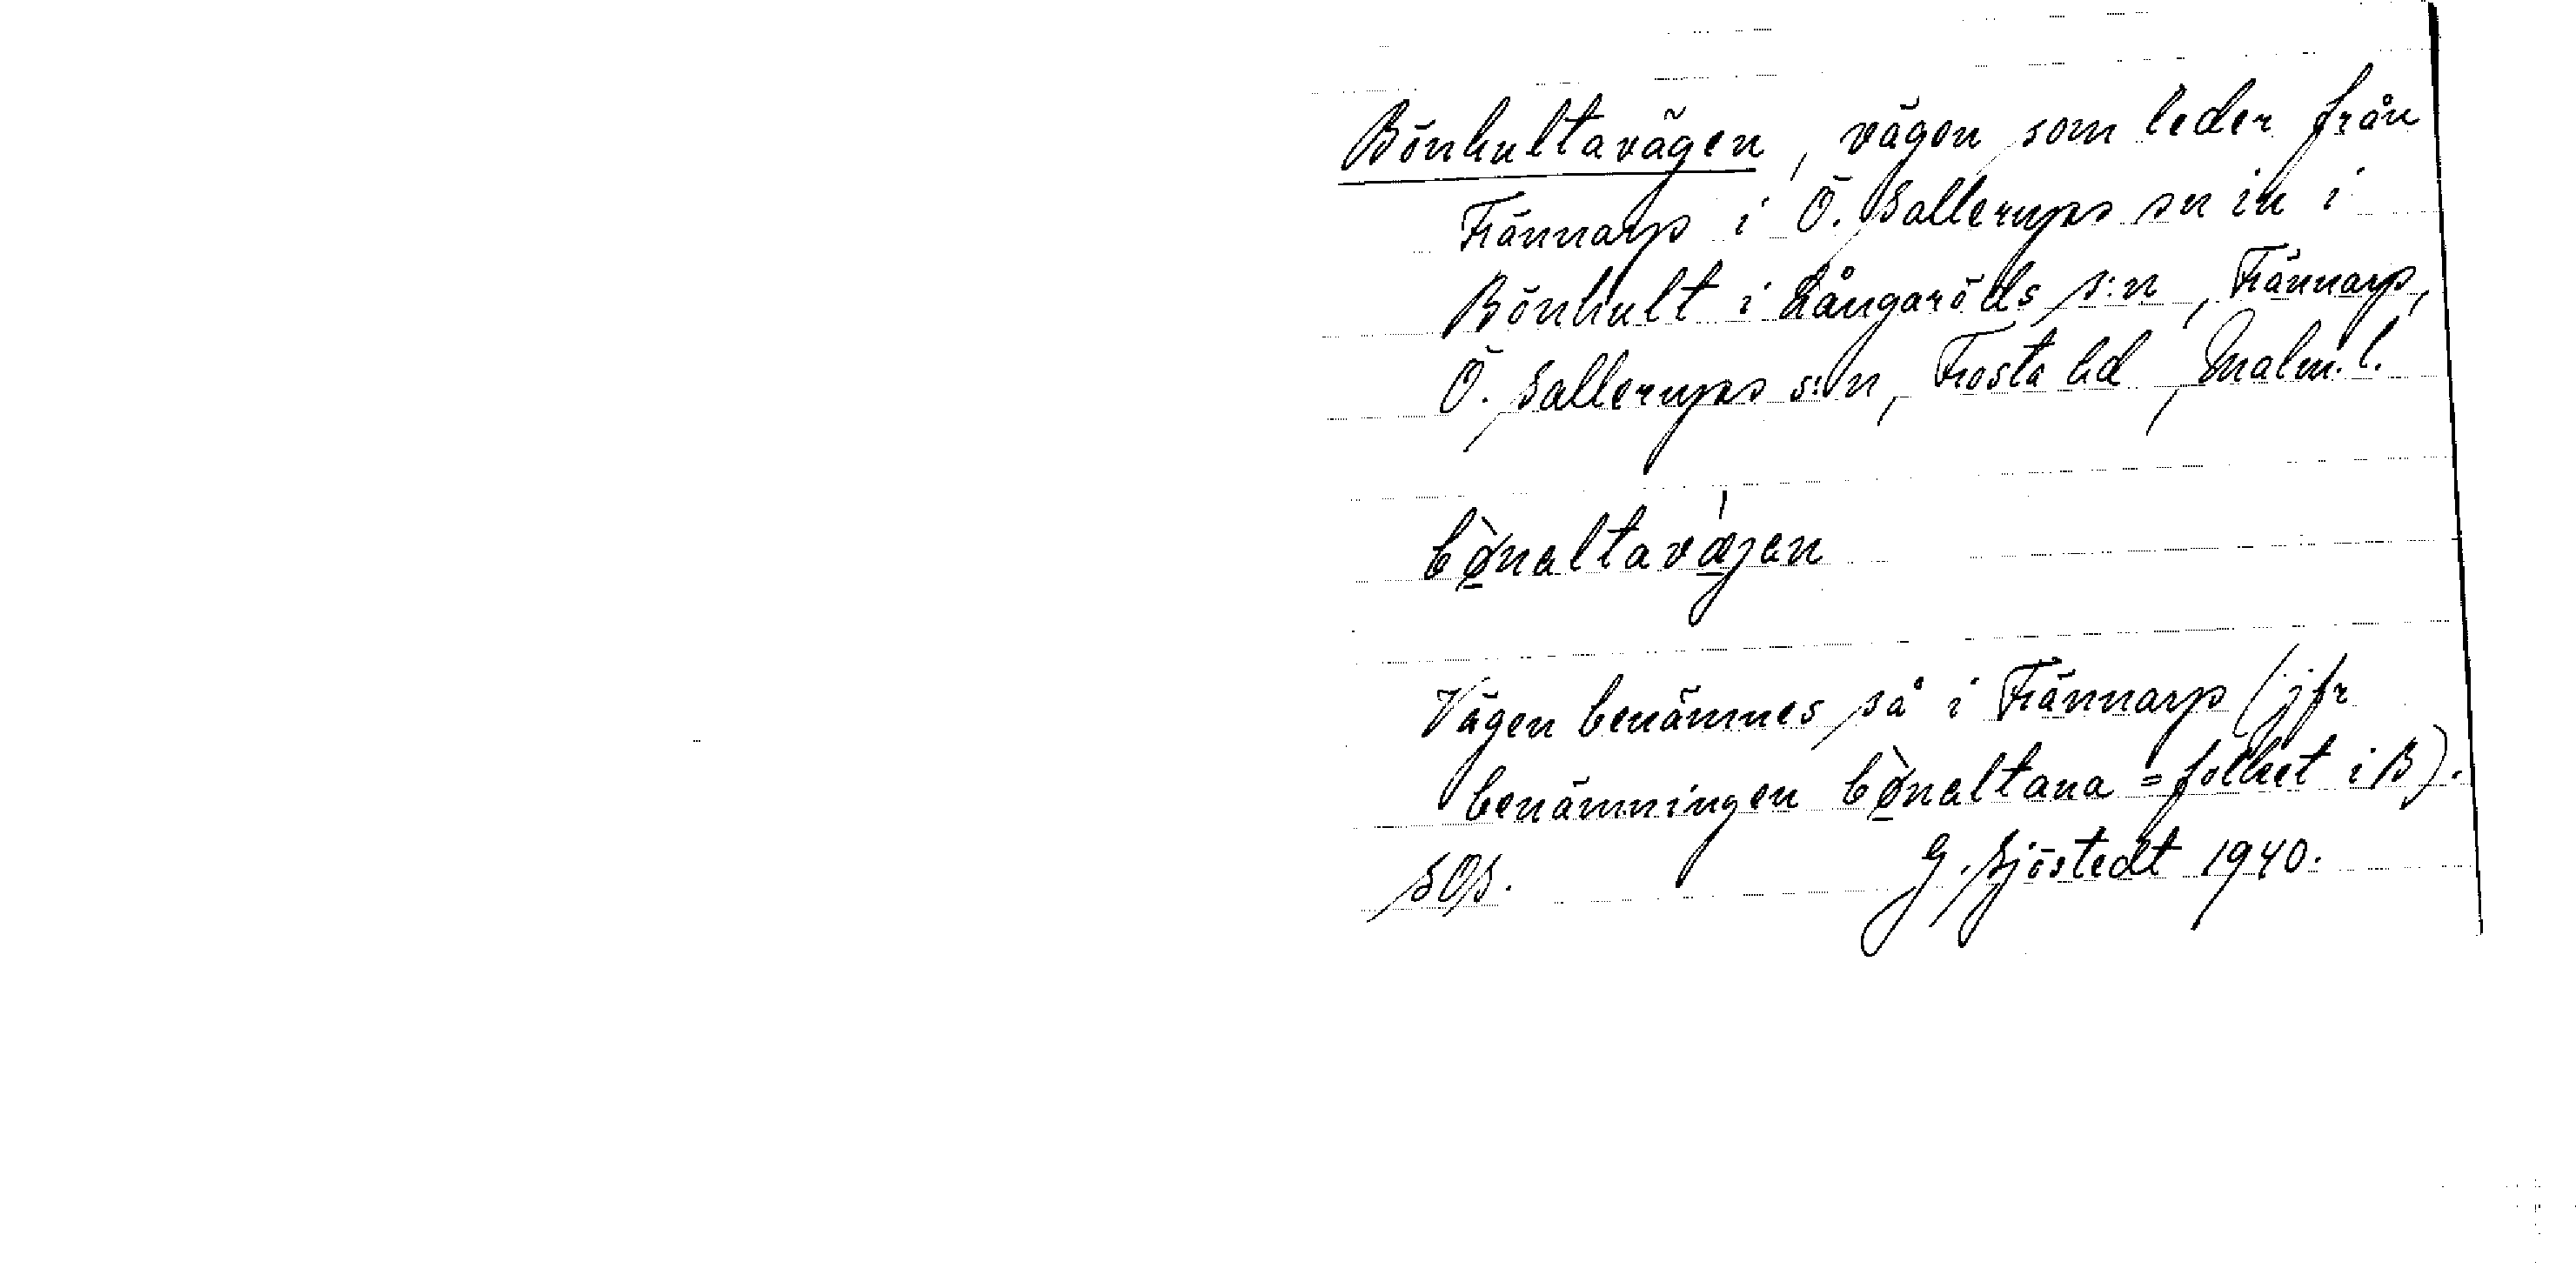 Bönhultavägen, vägen som leder från
Frännarp i Ö. Sallerups sn in i
Bönhult i Långaröds s:n, Frännarp,
Ö. Sallerups s:n, Frosta hd, Malm. l.
bø̀naltavæ̍jen
Vägen benämnes så i Frännarp (jfr
benämningen bø̀naltana = folket i B).
SOS. G. Sjöstedt 1940.